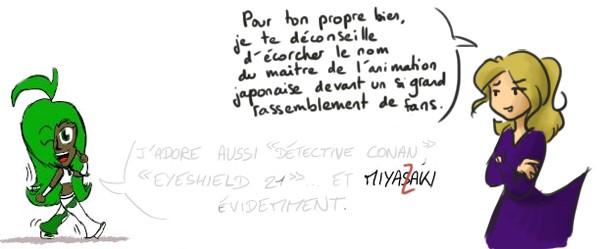 Pour ton propre bien,
je te déconseille
d'écorcher le nom
du maitre de l'animation
japonaise devant un si grand
rassemblement de fans.
J'ADORE AUSSI «DÉTECTIVE CONAN»,
«EYESHIELD 21»... ET MIYAZAKI
ÉVIDEMMENT.